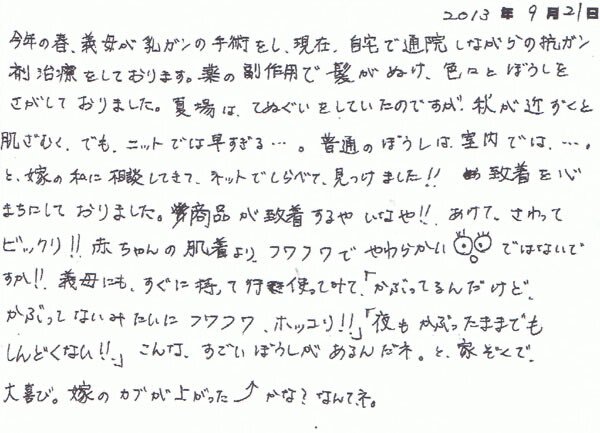 2013 年 9 月 21 日
今年の春、義母が乳ガンの手術をし、現在、自宅で通院しながらの抗ガン
剤治療をしております。薬の副作用で髪がぬけ、色々とぼうしを
さがしておりました。夏場は、てぬぐいをしていたのですが、秋が近ずくと
肌ざむく、でも、ニットでは早すぎる…。普通のぼうしは、室内では、…。
と、嫁の私に相談してきて、ネットでしらべて、見つけました!! 致着を心
まちにしておりました。商品が致着するやいなや!! あけて、さわって
ビックリ!! 赤ちゃんの肌着より、フワフワで やわらかい ではないで
すか!! 義母にも、すぐに持って行き使ってみて、「かぶってるんだけど、
かぶってないみたいにフワフワ、ホッコリ!!」「夜もかぶったままでも
しんどくない!!」こんな、すごいぼうしがあるんだネ。と、家ぞくで、
大喜び。嫁のカブが上がった⤴かな？なんてネ。